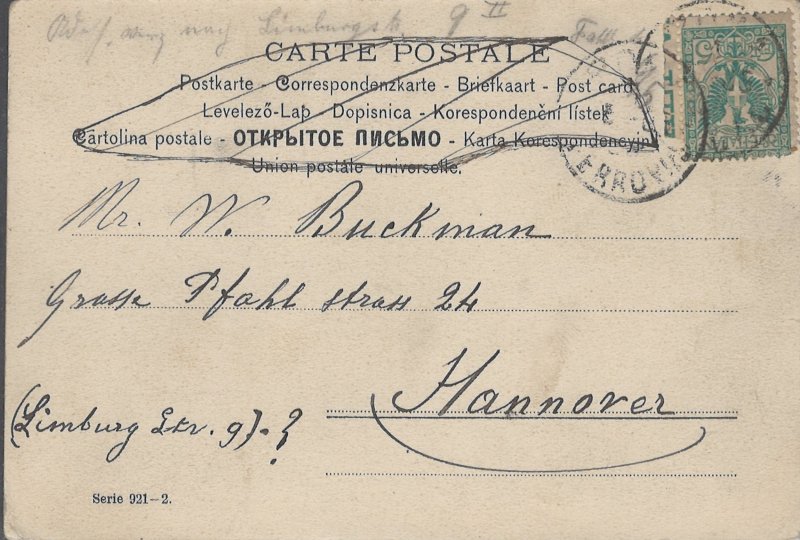 nach Limburgstr. 9 II
CARTE POSTALE
Postkarte - Correspondenzkarte - Briefkaart - Post card
Levelező-Lap - Dopisnica - Korespondenční lístek
Cartolina postale - ОТКРЫТОЕ ПИСЬМО - Karta Korespondencyjn
Union postale universelle.
ERROVI
5
Mr. W. Buckman
Grosse Pfahl strass 24
Hannover
(Limburg Str. 9).?
Serie 921-2.